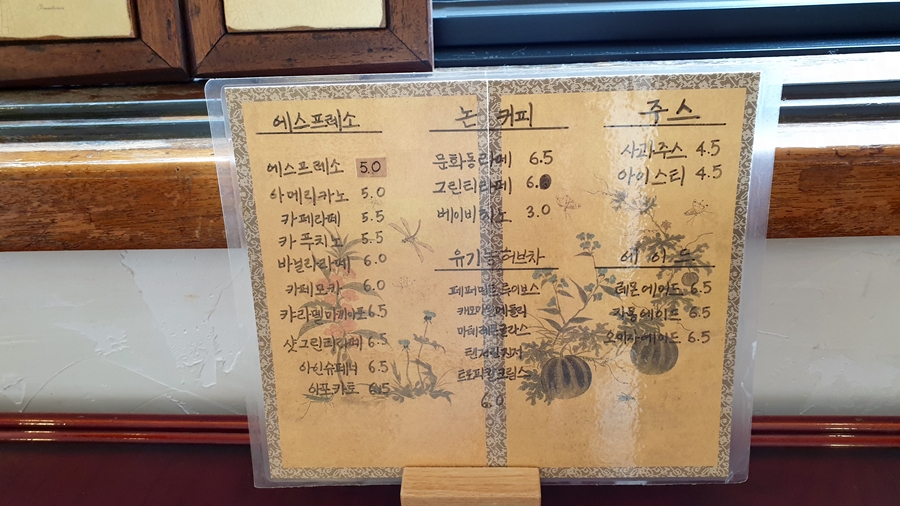 에스프레소
에스프레소 5.0
아메리카노 5.0
카페라떼 5.5
카푸치노 5.5
바닐라라떼 6.0
카페모카 6.0
캬라멜마끼아또 6.5
샷그린티라떼 6.5
아인슈페너 6.5
아포카토 6.5
논 커피
문화동라떼 6.5
그린티라떼 6.0
베이비치노 3.0
유기농 허브차
페퍼민트 루이보스
캐모마일 메들리
6.0
주스
사과주스 4.5
아이스티 4.5
에이드
레몬에이드 6.5
자몽에이드 6.5
오미자에이드 6.5